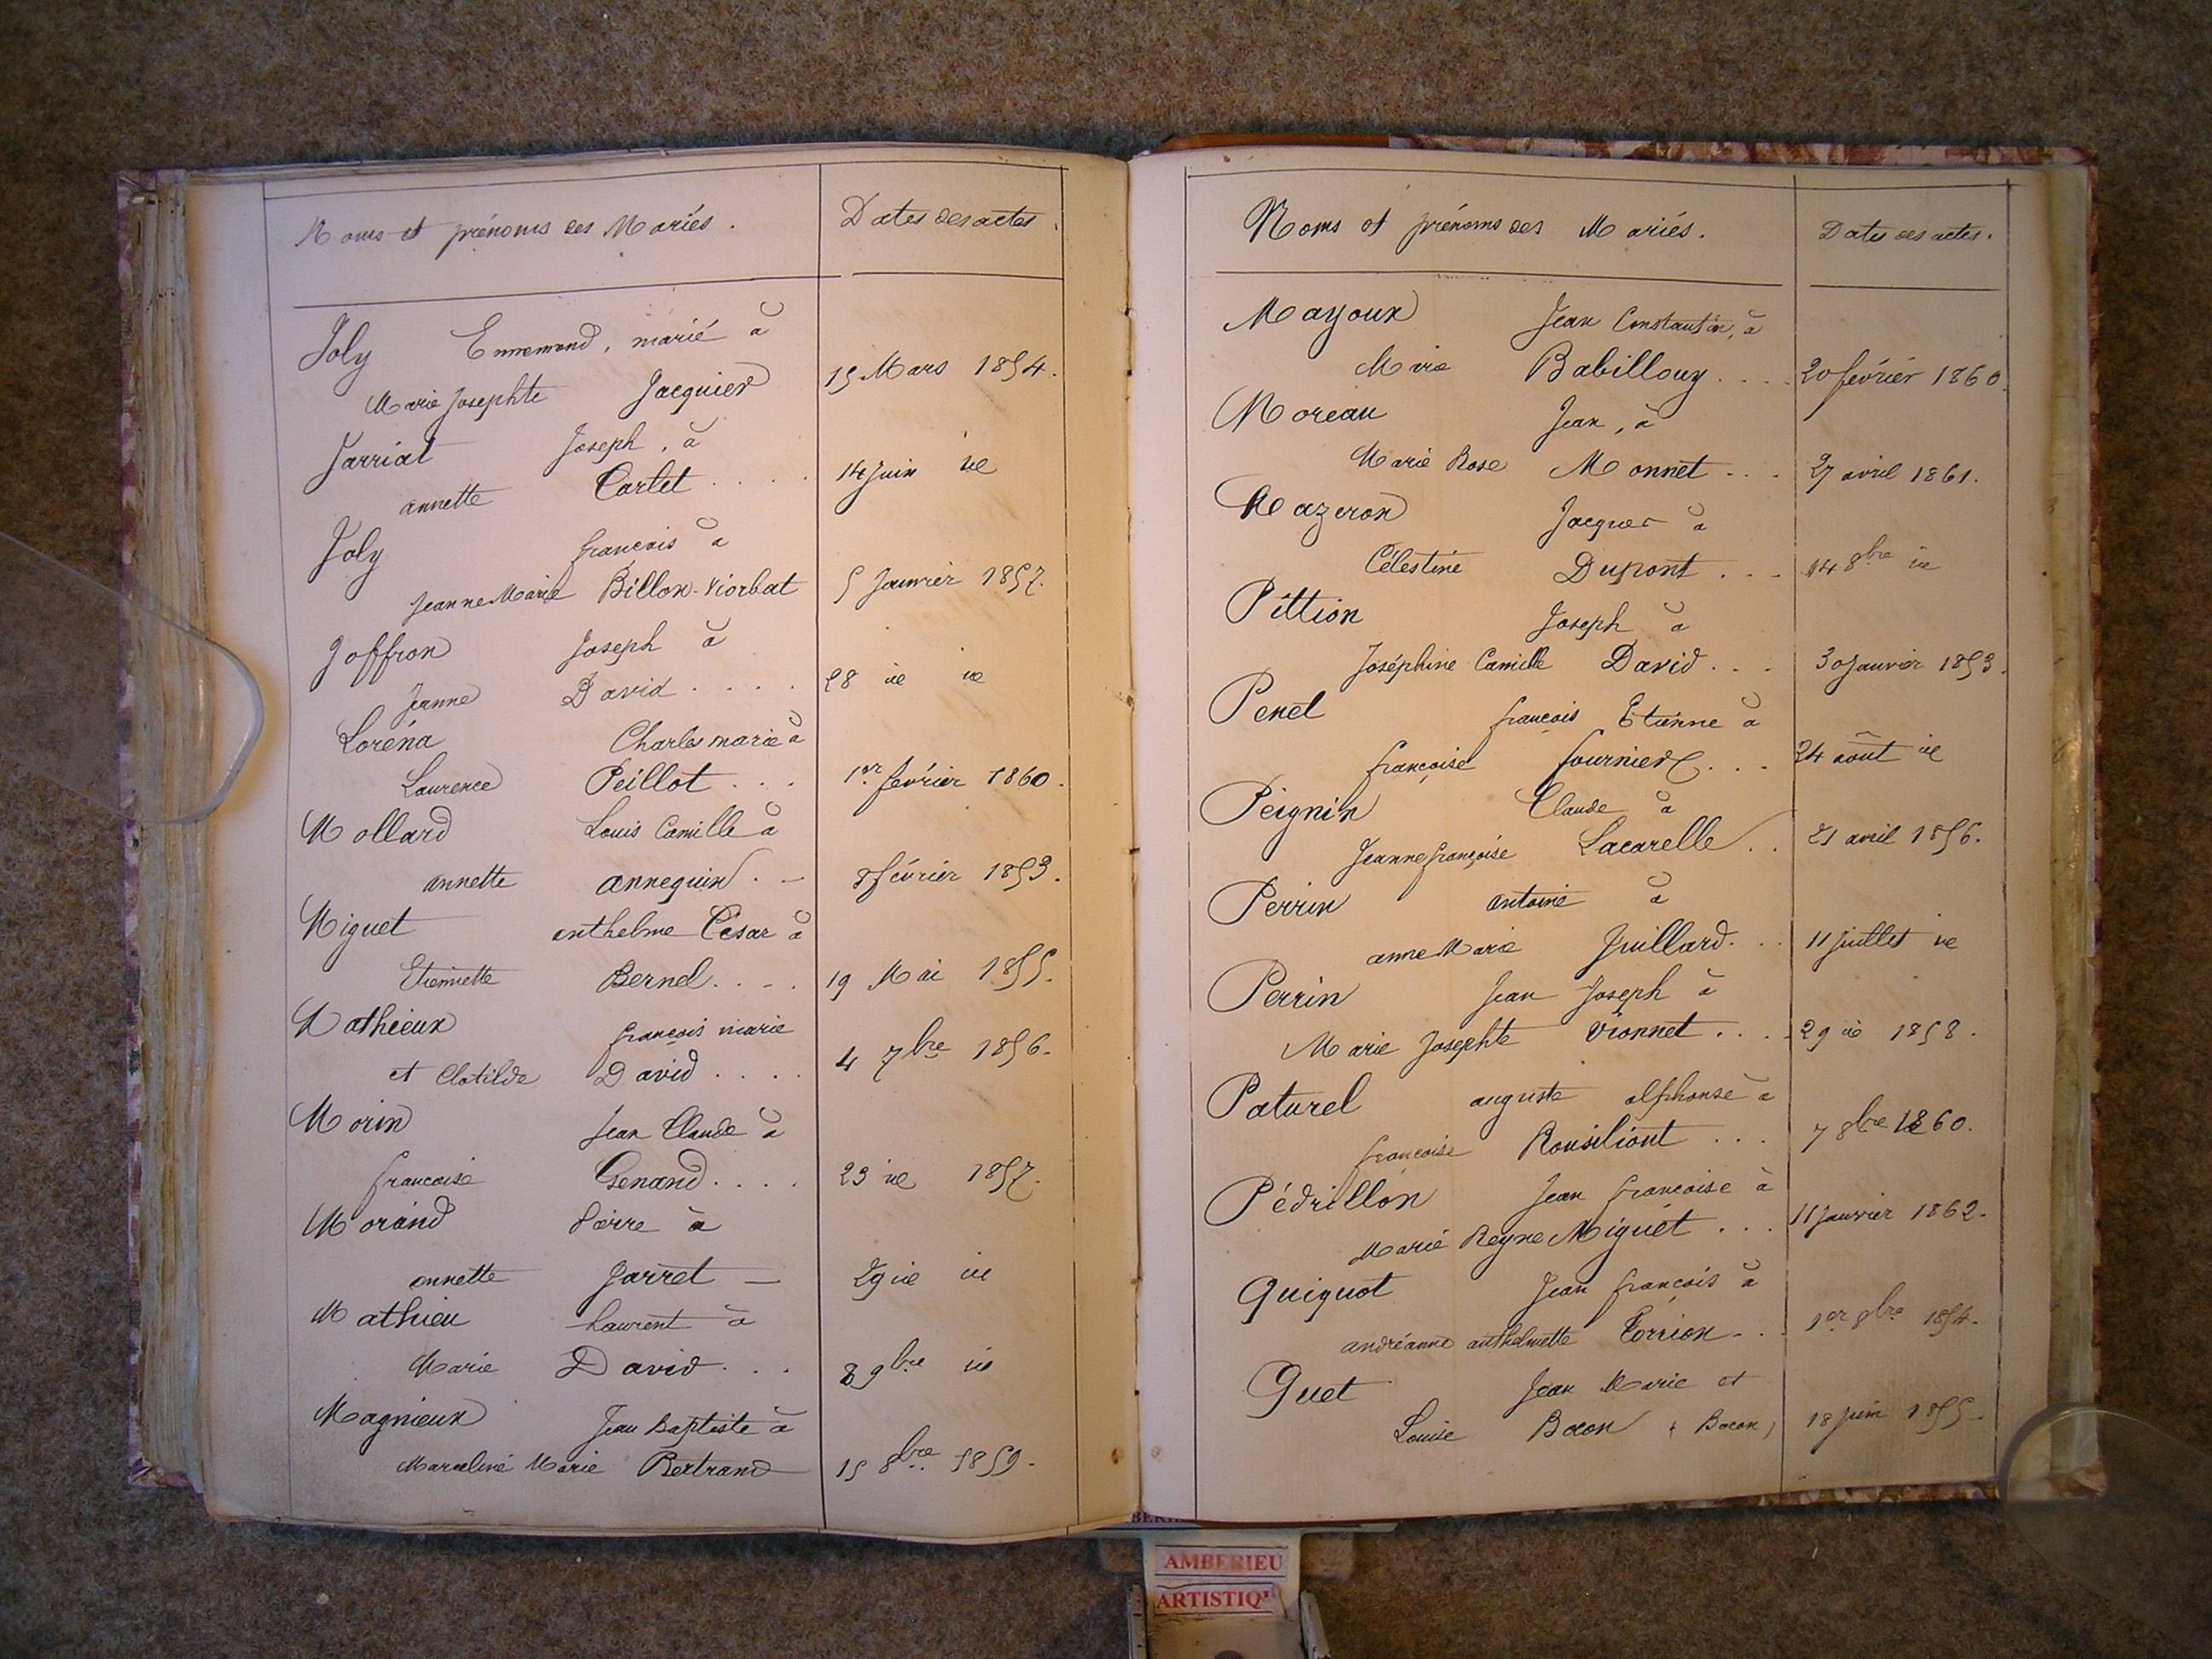 Noms et prénoms des Mariés. Dates des actes.
Joly Ennemond, marié à
Marie Josephte Jacquier 15 Mars 1854.
Jarriat Joseph, à
annette Cartet . . . . 14 Juin id
Joly françois à
Jeanne Marie Billon-Viorbat 5 Janvier 1857.
Joffron Joseph à
Jeanne David . . . . 28 id id
Loréna Charles marie à
Laurence Peillot . . . 1er février 1860.
Mollard Louis Camille à
annette annequin . - 8 février 1853.
Miguet anthelme César à
Etiennette Bernel . . - . 19 Mai 1855.
Mathieux françois marie
et Clotilde David . . . . 4 7bre 1856.
Morin Jean Claude à
françoise Genand . . . . 23 id 1857.
Morand Pierre à
annette Jarret — 29 id id
Mathieu Laurent à
Marie David . . . 8 9bre id
Magnieux Jean Baptiste à
Marceline Marie Bertrand 15 8bre 1859.
Noms et prénoms des Mariés. Dates des actes.
Mayoux Jean Constantin, à
Marie Babillouy . . . . 20 février 1860.
Moreau Jean, à
Marie Rose Monnet . . . 27 avril 1861.
Mazeron Jacques à
Célestine Dupont . . - 14 8bre id
Pittion Joseph à
Joséphine Camille David . . . 30 Janvier 1853.
Penet françois Etienne à
françoise fournier . . . 24 août id
Peignin Claude à
Jeanne françoise Lacarelle . . 21 avril 1856.
Perrin antoine à
anne Marie Juillard . . . 11 Juillet id
Perrin Jean Joseph à
Marie Josephte Vionnet . . . . 29 id 1858.
Paturel auguste alphonse à
françoise Rousiliont . . . 7 8bre 1860.
Pédrillon Jean françoise à
Marie Reyne Miguet . . . 11 Janvier 1862.
Quiquot Jean françois à
andréanne anthelmette Torrion - . . 1er 8bre 1854.
Quet Jean Marie et
Louise Bocon (Bocon) 18 Juin 1855.
AMBERIEU
ARTISTIQ